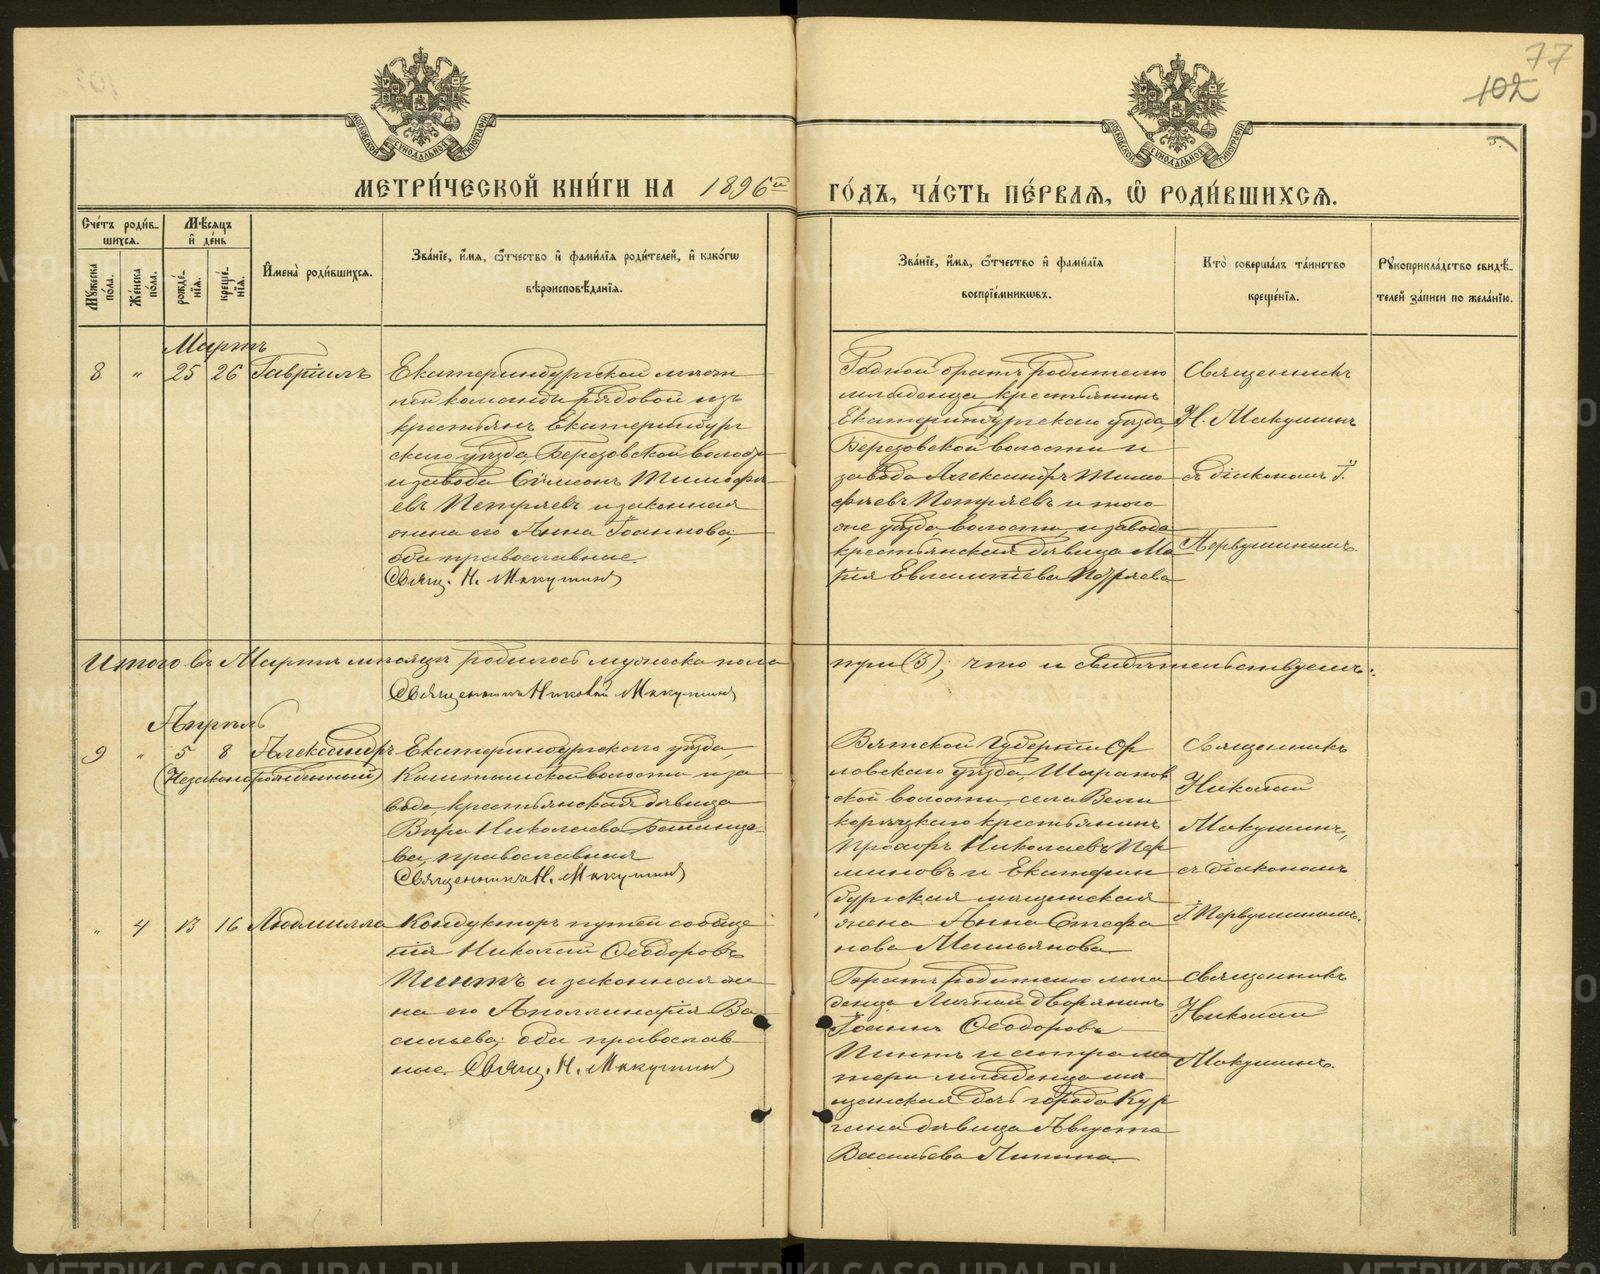 77
102
МОСКОВСКОЙ СУНОДАЛЬНОЙ ТИПОГРАФІИ
МОСКОВСКОЙ СУНОДАЛЬНОЙ ТИПОГРАФІИ
МЕТРИ́ЧЕСКОЙ КНИ́ГИ НА 1896й
ГО́ДЪ, ЧА́СТЬ ПЕ́РВАѦ, Ѡ РОДИ́ВШИХСѦ.
Сче́тъ роди́в-
шихсѧ.
Мѣ́сѧцъ
и де́нь
Мꙋ́жеска
по́ла.
Же́нска
по́ла.
рожде́-
нїѧ.
креще́-
нїѧ.
Имена̀ роди́вшихсѧ.
Зва́нїе, и́мѧ, ѻ́тчество и фами́лїѧ роди́телей, и како́гѡ
вѣроисповѣ́данїѧ.
Зва́нїе, и́мѧ, ѻ́тчество и фами́лїѧ
воспрїе́мникѡвъ.
Кто̀ соверша́лъ та́инство
креще́нїѧ.
Рꙋкоприкла́дство свидѣ́-
телей за́писи по жела́нїю.
Мартъ
8 " 25 26 Гавріилъ
Екатеринбургской мѣст
ной команды рядовой изъ
крестьянъ Екатеринбург
скаго уѣзда, Березовской волости
и завода Симеонъ Тимофе-
евъ Петряевъ и законная
жена его Анна Іоаннова,
оба православные.
Свящ. Н. Макушинъ
Родной братъ родителю
младенца, крестьянинъ
Екатеринбургскаго уѣзда,
Березовской волости и
завода Александръ Тимо
фѣевъ Петряевъ и того-
же уѣзда, волости и завода
крестьянская дѣвица Ма
рія Евлампіева Петряева
Священникъ
Н. Макушинъ
съ діакономъ І.
Первушинымъ.
Итого въ Мартѣ мѣсяцѣ родилось мужеска пола
три (3), что и свидѣтельствуемъ:
Священникъ Николай Макушинъ
Апрѣль
9 " 5 8 Александръ
(Незаконорожденный)
Екатеринбургскаго уѣзда,
волости и за
вода, крестьянская дѣвица
Вѣра Николаева
ва, православная
Священникъ Н. Макушинъ
Вятской Губерніи Ор
ловскаго уѣзда,
ской волости, села Вели
корѣцкаго крестьянинъ
Прохоръ Николаевъ Пер
миновъ и Екатерин
бургская мѣщанская
жена Анна Стефа
нова
Священникъ
Николай
Макушинъ,
съ діакономъ
І. Первушинымъ.
" 4 13 16 Людмилла
Кондукторъ путей сообще
нія Николай Ѳеодоровъ
Пинтъ и законная же
на его Аполлинарія Ва
сильева; оба православ
ные. Свящ. Н. Макушинъ
Братъ родителю мла
денца Личный дворянинъ
Іоаннъ Ѳеодоровъ
Пинтъ и сестра ма
тери младенца мѣ
щанская дочь города Кур
гана дѣвица Августа
Васильева
Священникъ
Николай
Макушинъ.
METRIKI.GASO-URAL.RU